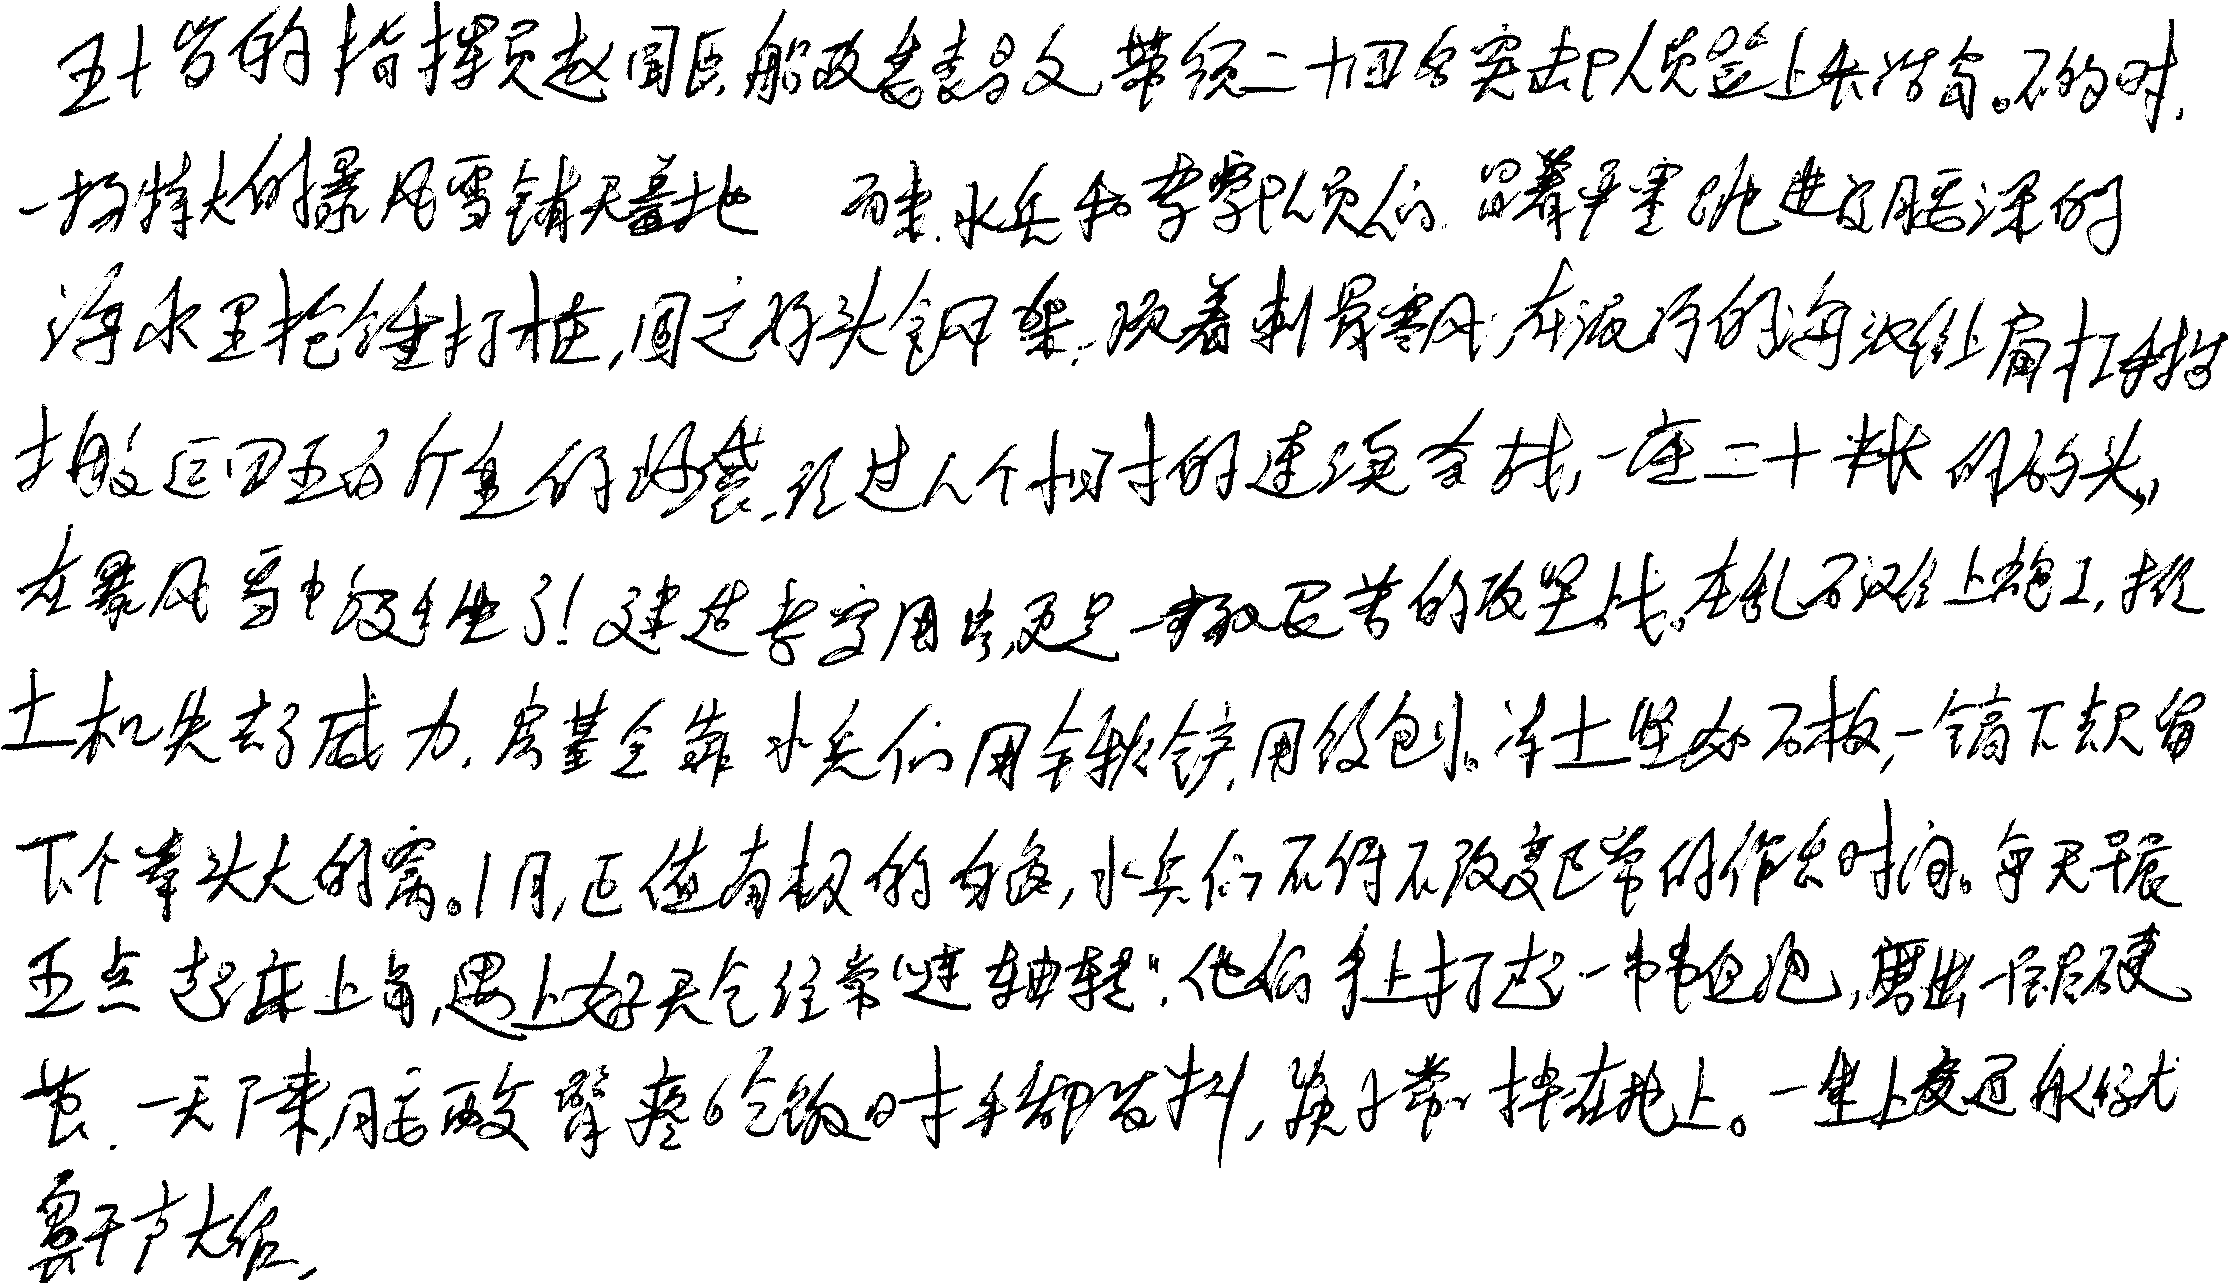 五十岁的指挥员赵国臣、船政委袁昌文带领二十四名突击队员登上长城湾。不多时,
一场特大的暴风雪铺天盖地 而来,水兵和考察队员们 冒着严寒跳进了腰深的
海水里抡锤打桩,固定码头钢架,顶着刺骨寒风,在泥泞的海滩上肩扛手抬
搬运四五百斤重的沙袋,经过八个小时的连续奋战,一座二十米长的码头,
在暴风雪中诞生了!建造考察用房,更是一场艰苦的攻坚战。在乱石滩上施工,推
土机失去了威力,房基全靠水兵们用铁锹铲,用镐刨。冻土坚如石板,一镐下去只留
下个拳头大的窝。1月,正值南极的白夜,水兵们不得不改变正常的作息时间。每天早晨
五点起床上岛,遇上好天气经常"连轴转",他们手上打起一串串血泡,磨出一层层硬
茧,一天下来,腰酸臂疼,吃饭时手都发抖,筷子常掉在地上。一坐上交通艇就
鼾声大作,